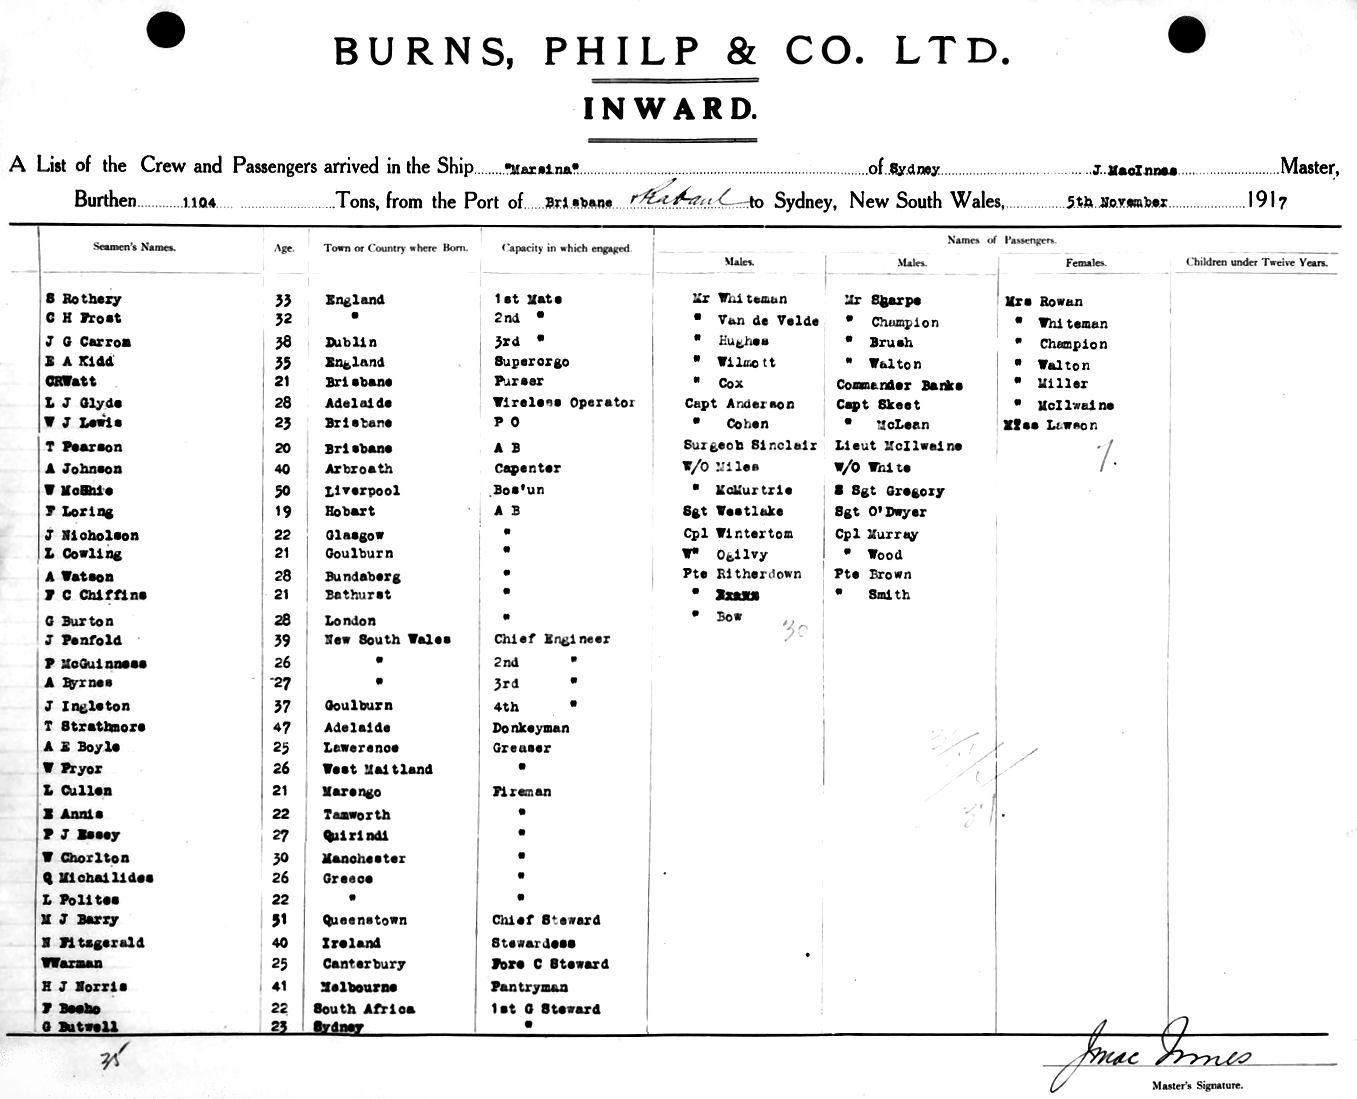 BURNS, PHILP & CO. LTD.
INWARD.
A List of the Crew and Passengers arrived in the Ship "Marsina" of Sydney J. MacInnes Master,
Burthen 1104 Tons, from the Port of Brisbane Rabaul to Sydney, New South Wales, 5th November 1917
Names of Passengers.
Seamen's Names. Age. Town or Country where Born. Capacity in which engaged. Males. Males. Females. Children under Twelve Years.
S Rothery 33 England 1st Mate Mr Whiteman Mr Sharpe Mrs Rowan
C H Frost 32 " 2nd " " Van de Velde " Champion " Whiteman
J G Carrom 38 Dublin 3rd " " Hughes " Brush " Champion
E A Kidd 35 England Supercrgo " Wilmott " Walton " Walton
CRWatt 21 Brisbane Purser " Cox Commander Banks " Miller
L J Glyde 28 Adelaide Wireless Operator Capt Anderson Capt Skeet " McIlwaine
W J Lewis 23 Brisbane P O " Cohen " McLean Miss Lawson
T Pearson 20 Brisbane A B Surgeon Sinclair Lieut McIlwaine 7.
A Johnson 40 Arbroath Capenter W/O Miles W/O White
W McShie 50 Liverpool Bos'un " McMurtrie S Sgt Gregory
F Loring 19 Hobart A B Sgt Westlake Sgt O'Dwyer
J Nicholson 22 Glasgow " Cpl Wintertom Cpl Murray
L Cowling 21 Goulburn " W" Ogilvy " Wood
A Watson 28 Bundaberg " Pte Ritherdown Pte Brown
F C Chiffins 21 Bathurst " " " Smith
G Burton 28 London " " Bow 30
J Penfold 39 New South Wales Chief Engineer
P McGuinness 26 " 2nd "
A Byrnes 27 " 3rd "
J Ingleton 37 Goulburn 4th "
T Strathmore 47 Adelaide Donkeyman
A E Boyle 25 Lawerence Greaser
W Pryor 26 West Maitland "
L Cullen 21 Marengo Fireman
E Annis 22 Tamworth "
P J Essey 27 Quirindi "
W Chorlton 30 Manchester "
Q Michailides 26 Greece "
L Polites 22 " "
M J Barry 51 Queenstown Chief Steward
N Fitzgerald 40 Ireland Stewardess
WWarman 25 Canterbury Fore C Steward
H J Norris 41 Melbourne Pantryman
F Beeho 22 South Africa 1st G Steward
G Butwell 23 Sydney "
35
J Mac Innes
Master's Signature.